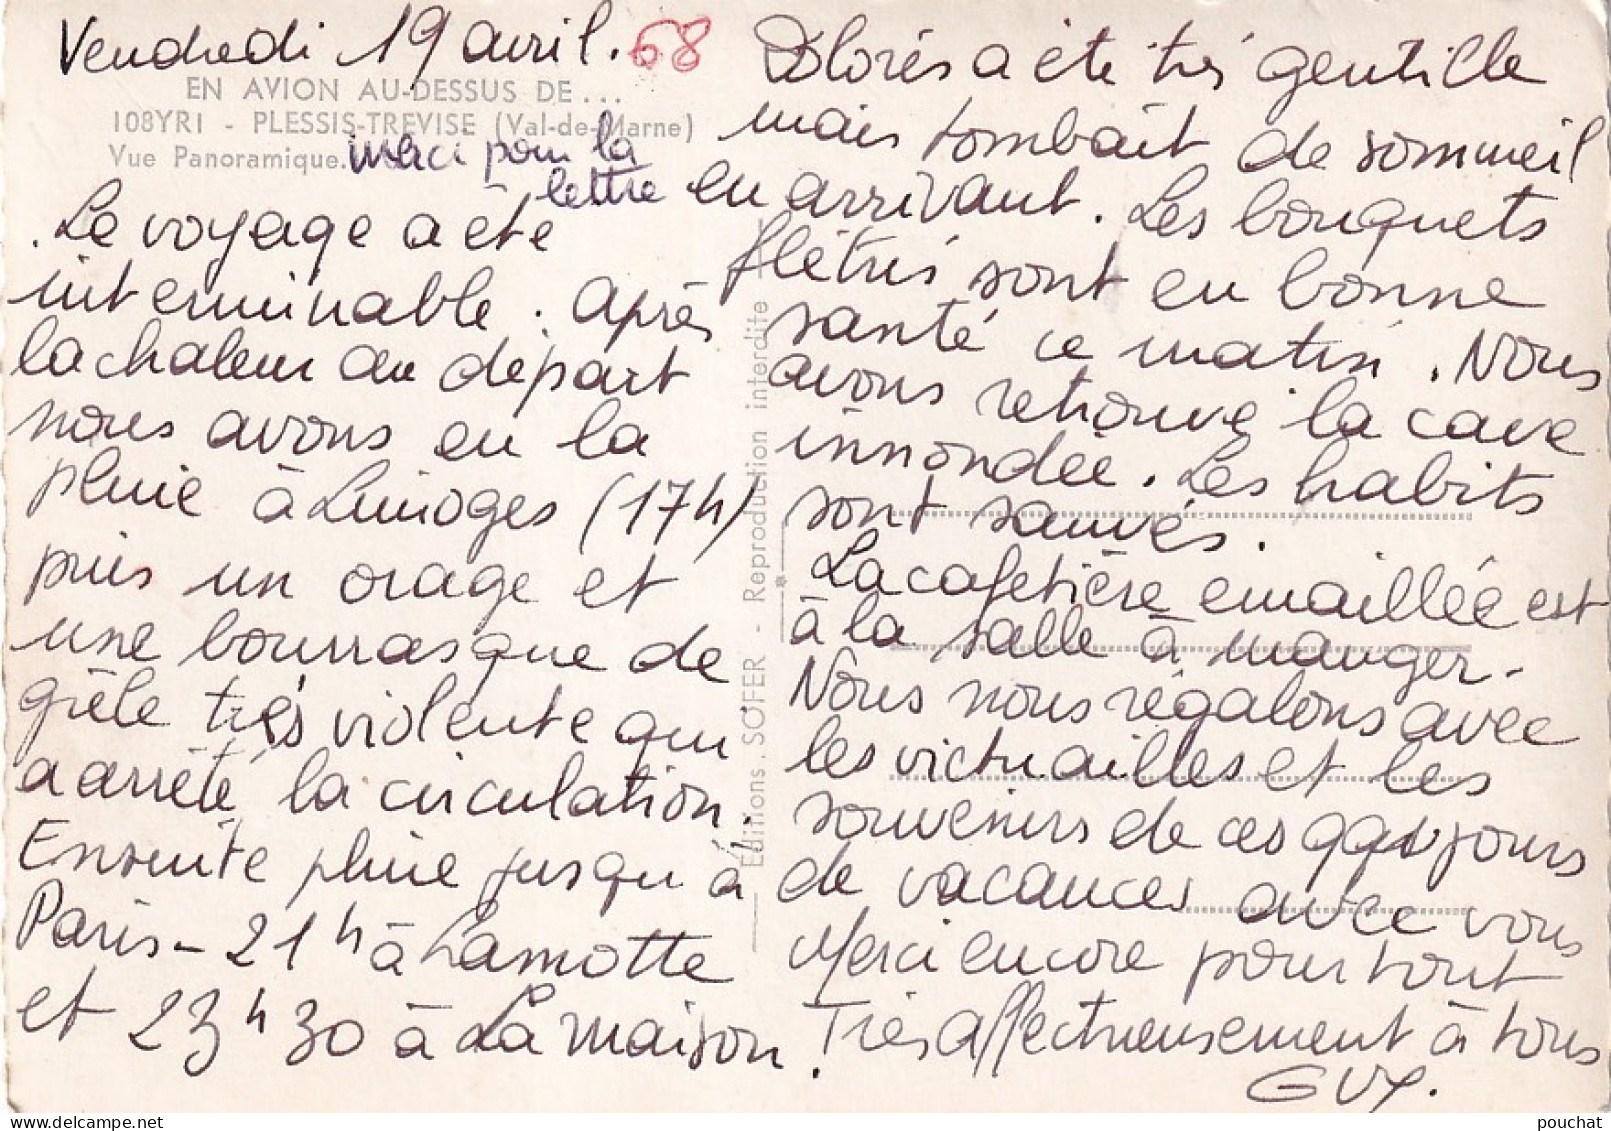 Vendredi 19 avril. 68
EN AVION AU-DESSUS DE...
108YRI - PLESSIS-TREVISE (Val-de-Marne)
Vue Panoramique.
merci pour la
lettre
. Le voyage a été
interminable. Après
la chaleur au départ
nous avons eu la
pluie à Limoges (17h)
puis un orage et
une bourrasque de
grèle très violente qui
a arrêté la circulation.
Ensuite pluie jusqu'à
Paris - 21h à Lamotte
et 23h30 à La maison.
Editions. SOFER - Reproduction interdite
Dolorès a été très gentille
mais tombait de sommeil
en arrivant. Les bouquets
flétris sont en bonne
santé ce matin. Nous
avons retrouvé la cave
innondée. Les habits
sont sauvés.
La cafetière emaillée est
à la salle à manger.
Nous nous régalons avec
les victuailles et les
souvenirs de ces qqes jours
de vacances avec vous
Merci encore pour tout
Très affectueusement à tous
GUY.
pouchat